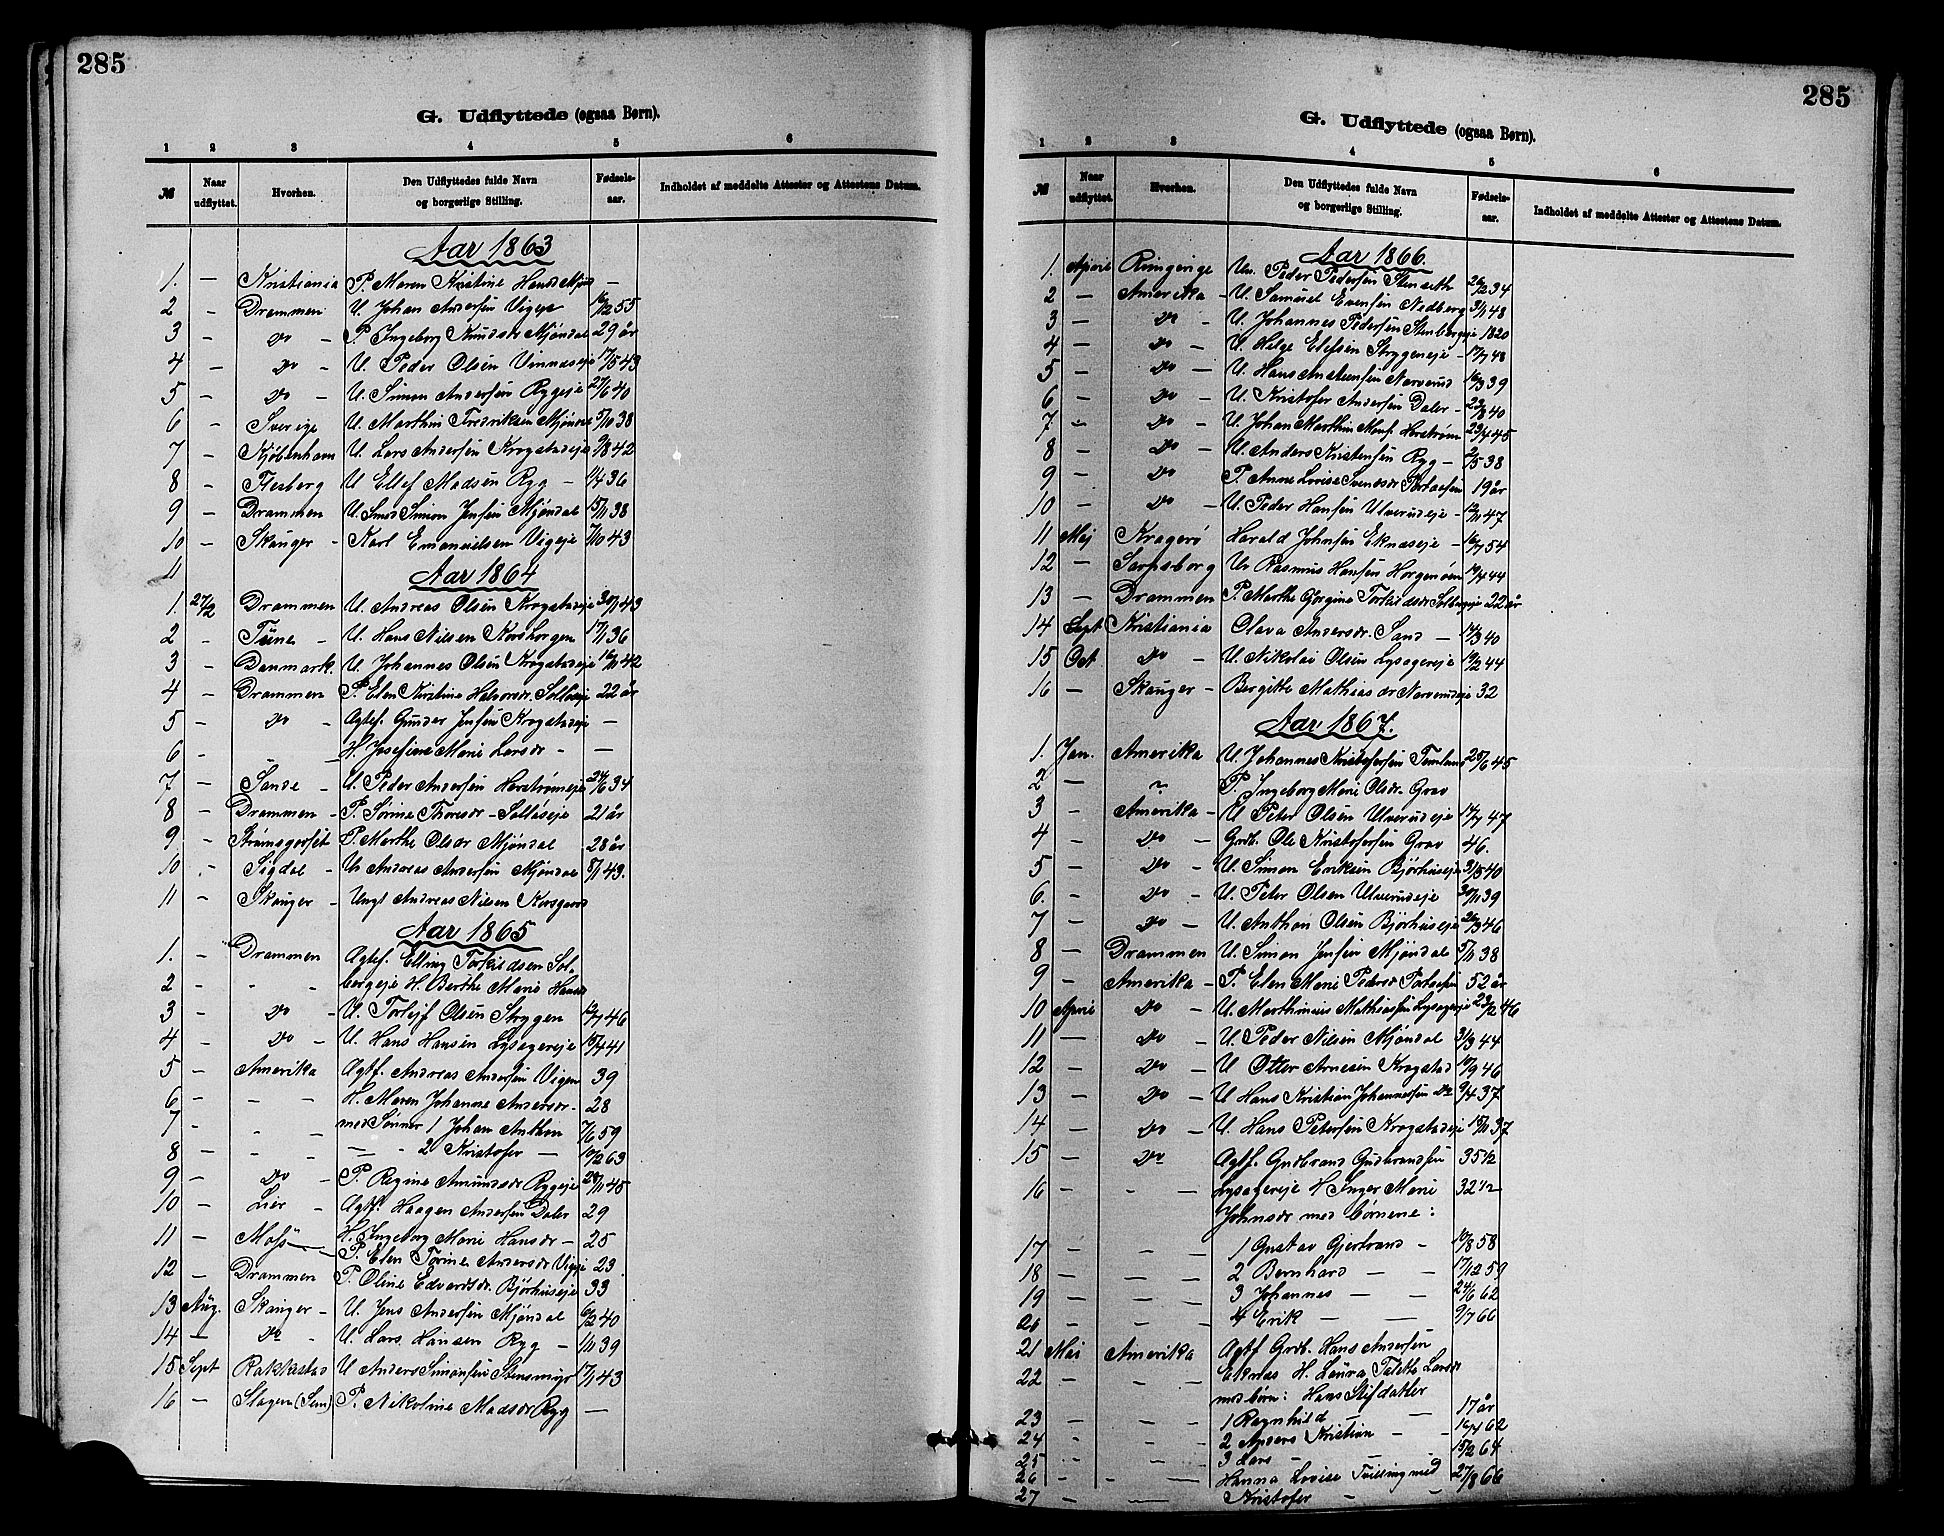 285
G. Udflyttede (ogsaa Børn).
1 2 3 4 5 6
№ Naar udflyttet. Hvorhen. Den Udflyttedes fulde Navn og borgerlige Stilling. Fødselsaar. Indholdet af meddelte Attester og Attestens Datum.
Aar 1863
1. — Kristiania P. Maren Kristine Hansd. —
2 — Drammen U. Johan Andersen Vigeje 55
3 — do — P. Ingeborg Knudsdr Mjøndal 29 år
4 — do — U. Peder Olsen 17/5 43
5 — do — U. Simon Andersen Rygeje 27/6 40
6 — Sverige U. Marthin Fredriksen 5/10 38
7 — Kjøbenhavn U. Lars Andersen Krogstadeje 9/8 42
8 — Flesberg U Ellef Madsen Ryg — 1/4 36
9 — Drammen U. Smed Simon Jensen Mjøndal 15/11 38
10 — Skauger — Karl Emanuelsen Vigeje 7/10 43
11
Aar 1864
1. 27/2 Drammen U. Andreas Olsen Krogstadeje 43
2 — Tune — U. Hans Nilsen Korsborgen 17/1 36
3 — Danmark. U. Johannes Olsen Krogstadeje 16/11 42
4 — Drammen P. Elen Kristine Halvorsdr. 22 år
5 — do — Agtef. Gunder Jensen Krogstadeje —
6 — H. Josefine Marie Larsdr — —
7 — Sande — U. Peder Andersen Horstrømeje 24/6 34
8 — Drammen — P. Sørine Thoresdr — 21 år
9 — Strømsgodset P. Marthe Olsdr Mjøndal 28 år
10 — Sigdal — Un Andreas Andersen Mjøndal 8/11 43.
11 — Skauger — Ungk Andreas Nilsen Korsgaard
Aar 1865
1. — Drammen Agtef. Elling Torkildsen Sol-
2 - - - bergeje H. Berthe Marie Hansd
3 — do — U. Torleif Olsen Strygen 12/7 46
4 — do — U. Hans Hansen Lysagereje 15/4 41
5 — Amerika Agtf. Andreas Andersen Vigen 39
6 - - - H. Maren Johanne Andersdr — 28
7 - - - med Sønner 1 Johan Anthon 7/6 59
8 - - - — — 2 Kristofer — 10/2 63
9 — do — P. Regine Amundsdr Rygeje 20/11 45
10 — Lier — Agtf. Haagen Andersen Daler 29
11 — Moss — H. Ingeborg Marie Hansdr — 25
P. Elen Torine Andersdr Vigeje 23
12 — Drammen P. Oline Edvardsdr. Bjørhuseje 33
13 Aug. Skauger — U. Jens Andersen Mjøndal 6/2 40
14 — do — U. Lars Hansen Ryg — 1/11 39
15 Sept Rakkestad U Anders Simonsen Stensmyr 17/1 43
16 — Slagen (Sem) P. Nikoline Madsdr Ryg —
285
G. Udflyttede (ogsaa Børn).
1 2 3 4 5 6
№ Naar udflyttet. Hvorhen. Den Udflyttedes fulde Navn og borgerlige Stilling. Fødselsaar. Indholdet af meddelte Attester og Attestens Datum.
Aar 1866.
1. April Ringerige Un. Peder Pedersen Stenseth 26/12 34
2 — Amerika — U. Samuel Evensen Nedberg 31/1 48
3 — do — U. Johannes Pedersen Stenbergeje 1820
4 — do — U. Helge Elefsen Strygeneje — 17/7 48
5 — do — U. Hans Narverud 16/3 39
6 — do — U. Kristofer Andersen Daler — 23/8 40
7. — do — U. Johan Marthin Horstrøm 23/4 45
8 — do — U. Anders Kristensen Ryg — 2/5 38
9 — do P. Anne Lovise Svendsdr 19 år
10 — do — U. Peder Hansen Ulverudeje — 12/11 47
11 Maj Kragerø Harald Johnsen Eknæseje — 16/7 54
12 — Sarpsborg Un Rasmus Hansen Horgenøen 19/4 44
13 — Drammen P. Marthe Gorgine Torkildsdr Solbergeje 22 år
14 Sept Kristiania Olava Andersdr. Sand — 14/3 40
15 Oct do — U. Nikolai Olsen Lysagereje 19/2 44
16 — Skauger — Bergitte Mathiasdr Narverudeje 32
Aar 1867.
1. Jan. Amerika U. Johannes Kristofersen 25/6 45
2 — " P. Ingeborg Marie Olsdr. Grav
3 — Amerika — U Peter Olsen Ulverudeje 14/7 47
4 — do — Grdb. Ole Kristofersen Grav 46.
5 — do — U. Simon Eriksen Bjørhuseje 31/5 40
6. — do — U. Peter Olsen Ulverudeje 30/11 39
7 — do — U. Anthon Olsen Bjørhuseje 26/3 46
8 — Drammen U. Simon Jensen Mjøndal 5/11 38
9 — Amerika — P. Elen Marie Pedersdr 52 år
10 April do — U. Marthinius Mathiassen Lysagereje 23/2 46
11 — do — U. Peder Nilsen Mjøndal 31/3 44
12 — do — U Otter Arnesen Krogstad 10/9 46
13 — do — U. Hans Kristian Johannessen do 9/4 37
14 — do — U. Hans Petersen Krogstadeje 15/11 37
15 — do Agtf. Gudbrand Gudbrandsen 35 1/2
16 — - — Lysagereje H. Inger Marie 32 1/2
Johnsdr med børnene:
17 — - — 1 Gustav Gjerbrand — 10/8 58
18 — — — 2 Bernhard — — 17/12 59
19 — — — 3 Johannes — — 24/6 62
20 — — — 4 Erik — — 9/7 66
21 Mai Amerika Agtf Grdb. Hans Andersen
22 — — — Eknæs H. Laura Larsdr
med børn: Hans Stifdatter
23 — — — 1 Ragnhild — — 17 år
24 — — — 2 Anders Kristian — — 16/4 62
25 — — — 3 Lars — 15/2 64
26 — - — Hanna Lovise Tvilling med 27/8 66
27 — — Kristofer — —